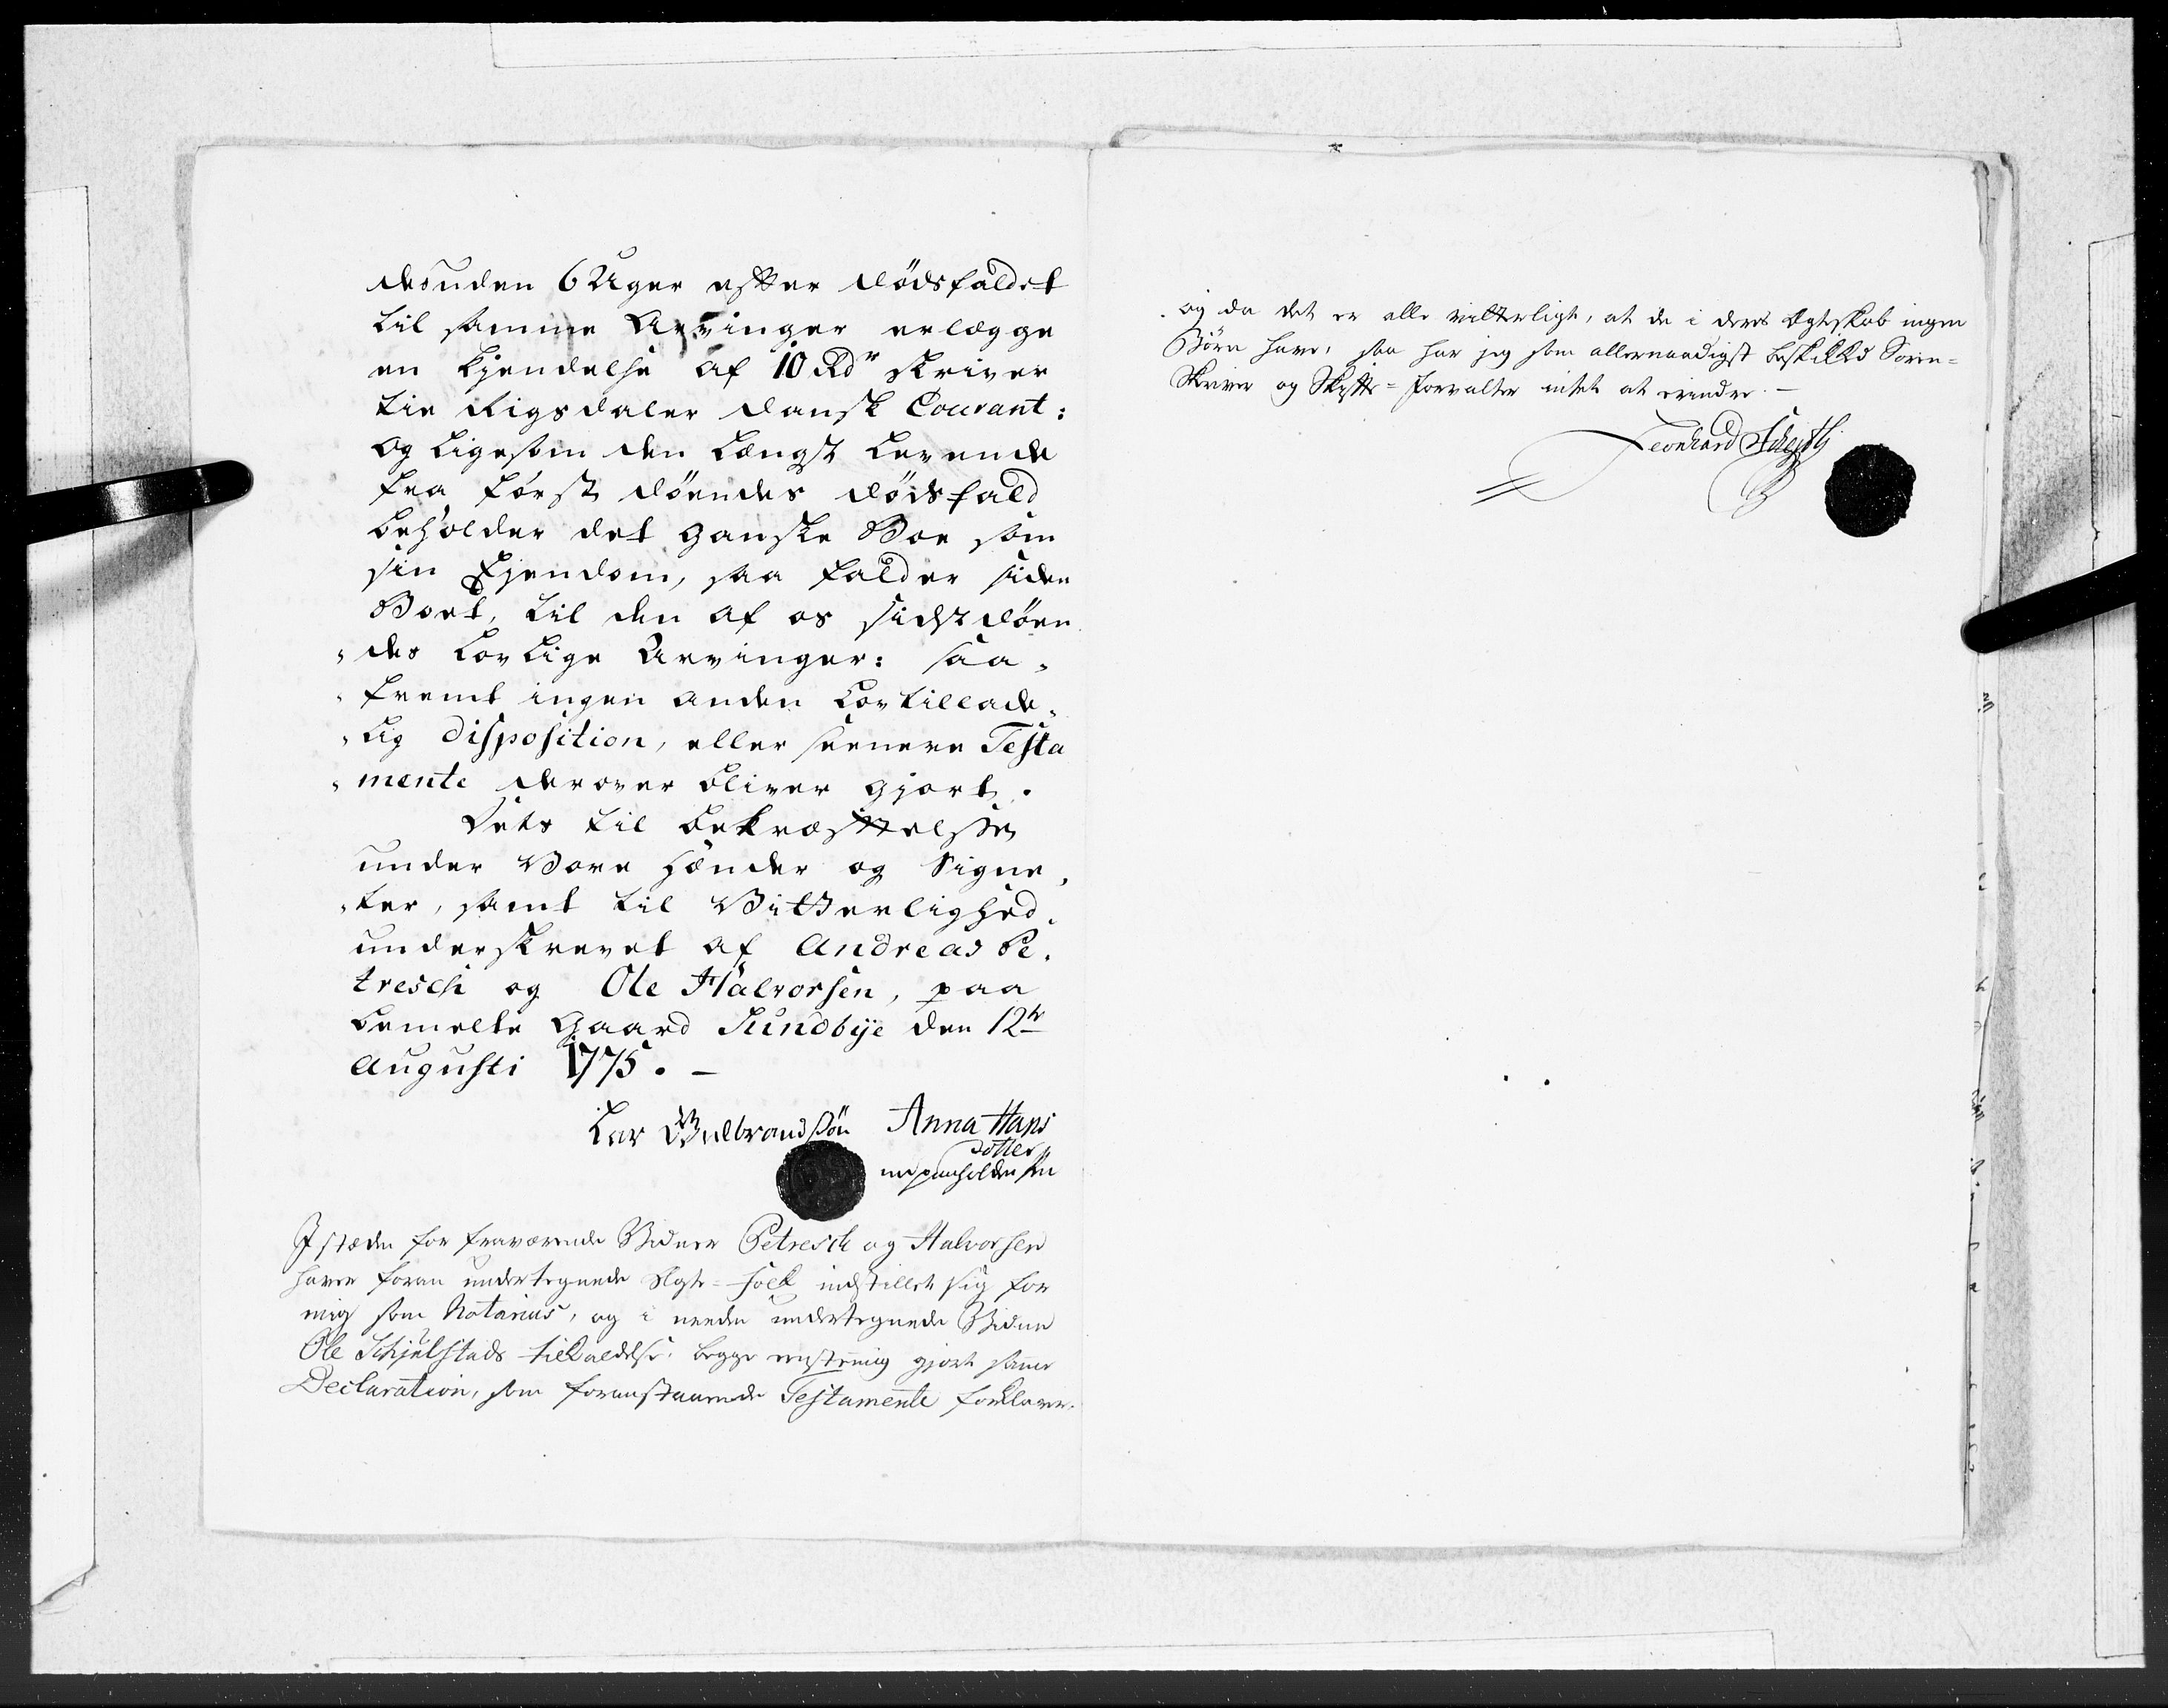 desuden 6 Uger efter dødsfaldet
til samme Arvinger erlægge
en Kjendelse af 10 Rdr skriver
tie Rigsdaler dansk Courant:
og ligesom den Længst Levende
fra først døendes dødsfald
beholder det ganske Boe som
sin Ejendom, saa falder siden
Boet, til den af os sidst døen
des lovlige Arvinger: saa-
fremt ingen anden Lovtillade-
lig Disposition, eller seenere Testa
mente derover bliver gjort.
Dets til bekræfttelse
under Vore hænder og Signe-
ter, samt til Vitterlighed
underskrevet af Andreas Pe-
tresch og Ole Halvorsen, paa
bemelte Gaard Sundbye den 12te
Augusti 1775. -
Lar Gulbrandsøn Anna Hans
dotter
med paaholden Pen
I stæden for fraværende Vidner Petresch og Halvorsen
haver foran undertegnede Ægte-Folk indstillet sig for
mig som Notarius, og i neden undertegnede Vidne
Ole Schjelstads tilkaldelse, begge eenstemmig gjort samme
Declaration, som foranstaaende Testamente forklarer.
og da det er alle vitterligt, at de i deres Ægteskab ingen
Børn have, saa har jeg som allernaadigst beskikked Soren-
Skriver og Skifte-Forvalter intet at erindre. -
Leonhard